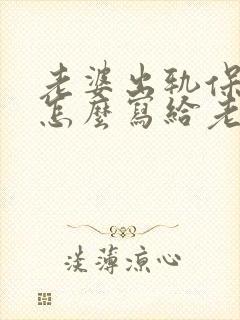 老婆出軌保
怎麼寫給老
淡薄涼心